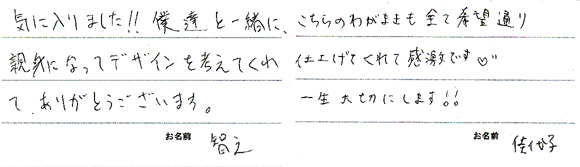 気に入りました!! 僕達と一緒に、
親身になってデザインを考えてくれ
て、ありがとうございます。
お名前 智之
こちらのわがままも全て希望通り
仕上げてくれて感激です♡”
一生大切にします!!
お名前 佳代子